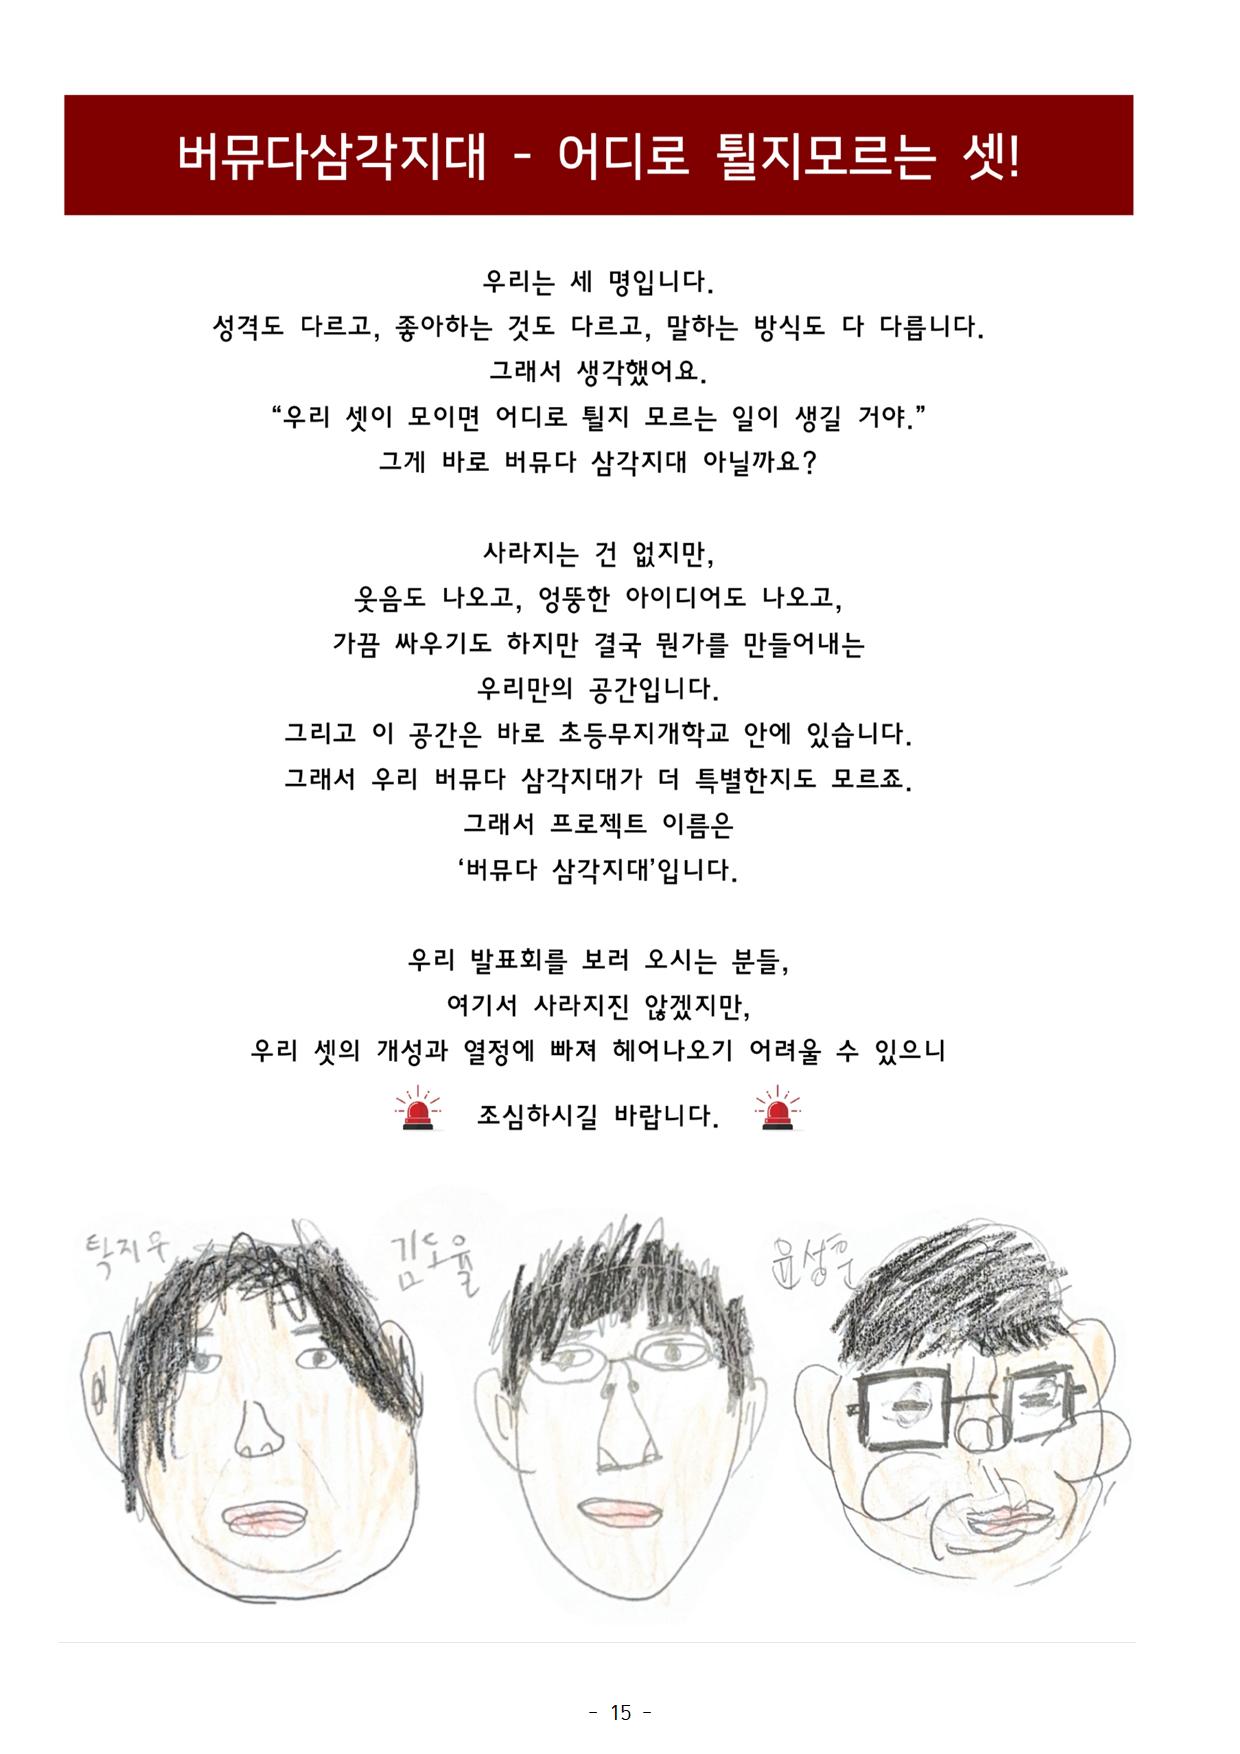 버뮤다삼각지대 - 어디로 튈지모르는 셋!
우리는 세 명입니다.
성격도 다르고, 좋아하는 것도 다르고, 말하는 방식도 다 다릅니다.
그래서 생각했어요.
“우리 셋이 모이면 어디로 튈지 모르는 일이 생길 거야.”
그게 바로 버뮤다 삼각지대 아닐까요?
사라지는 건 없지만,
웃음도 나오고, 엉뚱한 아이디어도 나오고,
가끔 싸우기도 하지만 결국 뭔가를 만들어내는
우리만의 공간입니다.
그리고 이 공간은 바로 초등무지개학교 안에 있습니다.
그래서 우리 버뮤다 삼각지대가 더 특별한지도 모르죠.
그래서 프로젝트 이름은
‘버뮤다 삼각지대’입니다.
우리 발표회를 보러 오시는 분들,
여기서 사라지진 않겠지만,
우리 셋의 개성과 열정에 빠져 헤어나오기 어려울 수 있으니
조심하시길 바랍니다.
탁지우
김도율
윤성훈
- 15 -